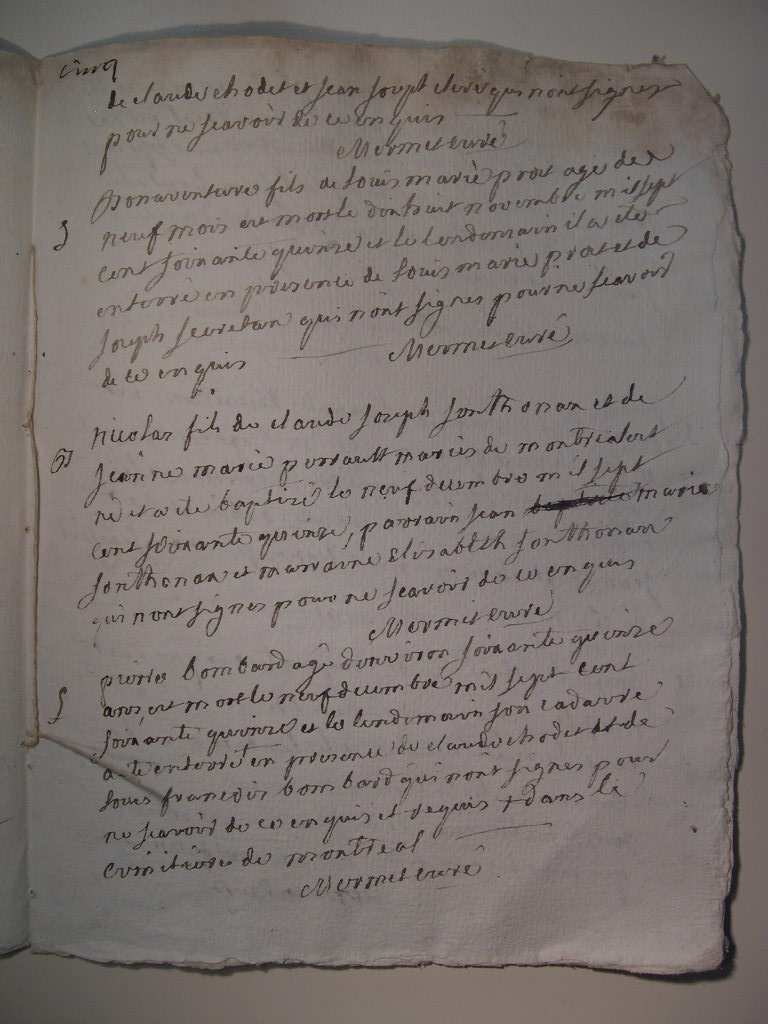 cinq
de claude chodet et jean josept clerc qui nont signes
pour ne scavoir de ce enquis
Mermet curé
Bonaventure fils de Louis marie prost agé de
S neuf mois est mort le dixhuit novembre mil sept
cent soixante quinze et le lendemain il a ete
enterré en presence de Louis marie prat et de
joseph secretan qui nont signes pour ne scavoir
de ce enquis Mermet curé
nicolas fils de claude joseph jonthonax et de
B jeanne marie perrault mariés de montreal est
né et a ete baptizé le neuf decembre mil sept
cent soixante quinze, parrain jean marie
jonthonax et marraine Elisabeth jonthonax
qui nont signes pour ne scavoir de ce enquis
Mermet curé
pierre bombard agé denviron soixante quinze
S ans est mort le neuf decembre mil sept cent
soixante quinze et le lendemain son cadavre
a ete enterré en presence de claude chodet et de
Louis francois bombard qui nont signes pour
ne scavoir de ce enquis et requis + dans le
cimitiere de montreal
Mermet curé